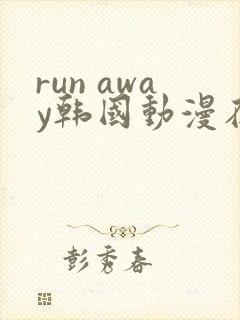 run awa
y韩國動漫在
彭秀春